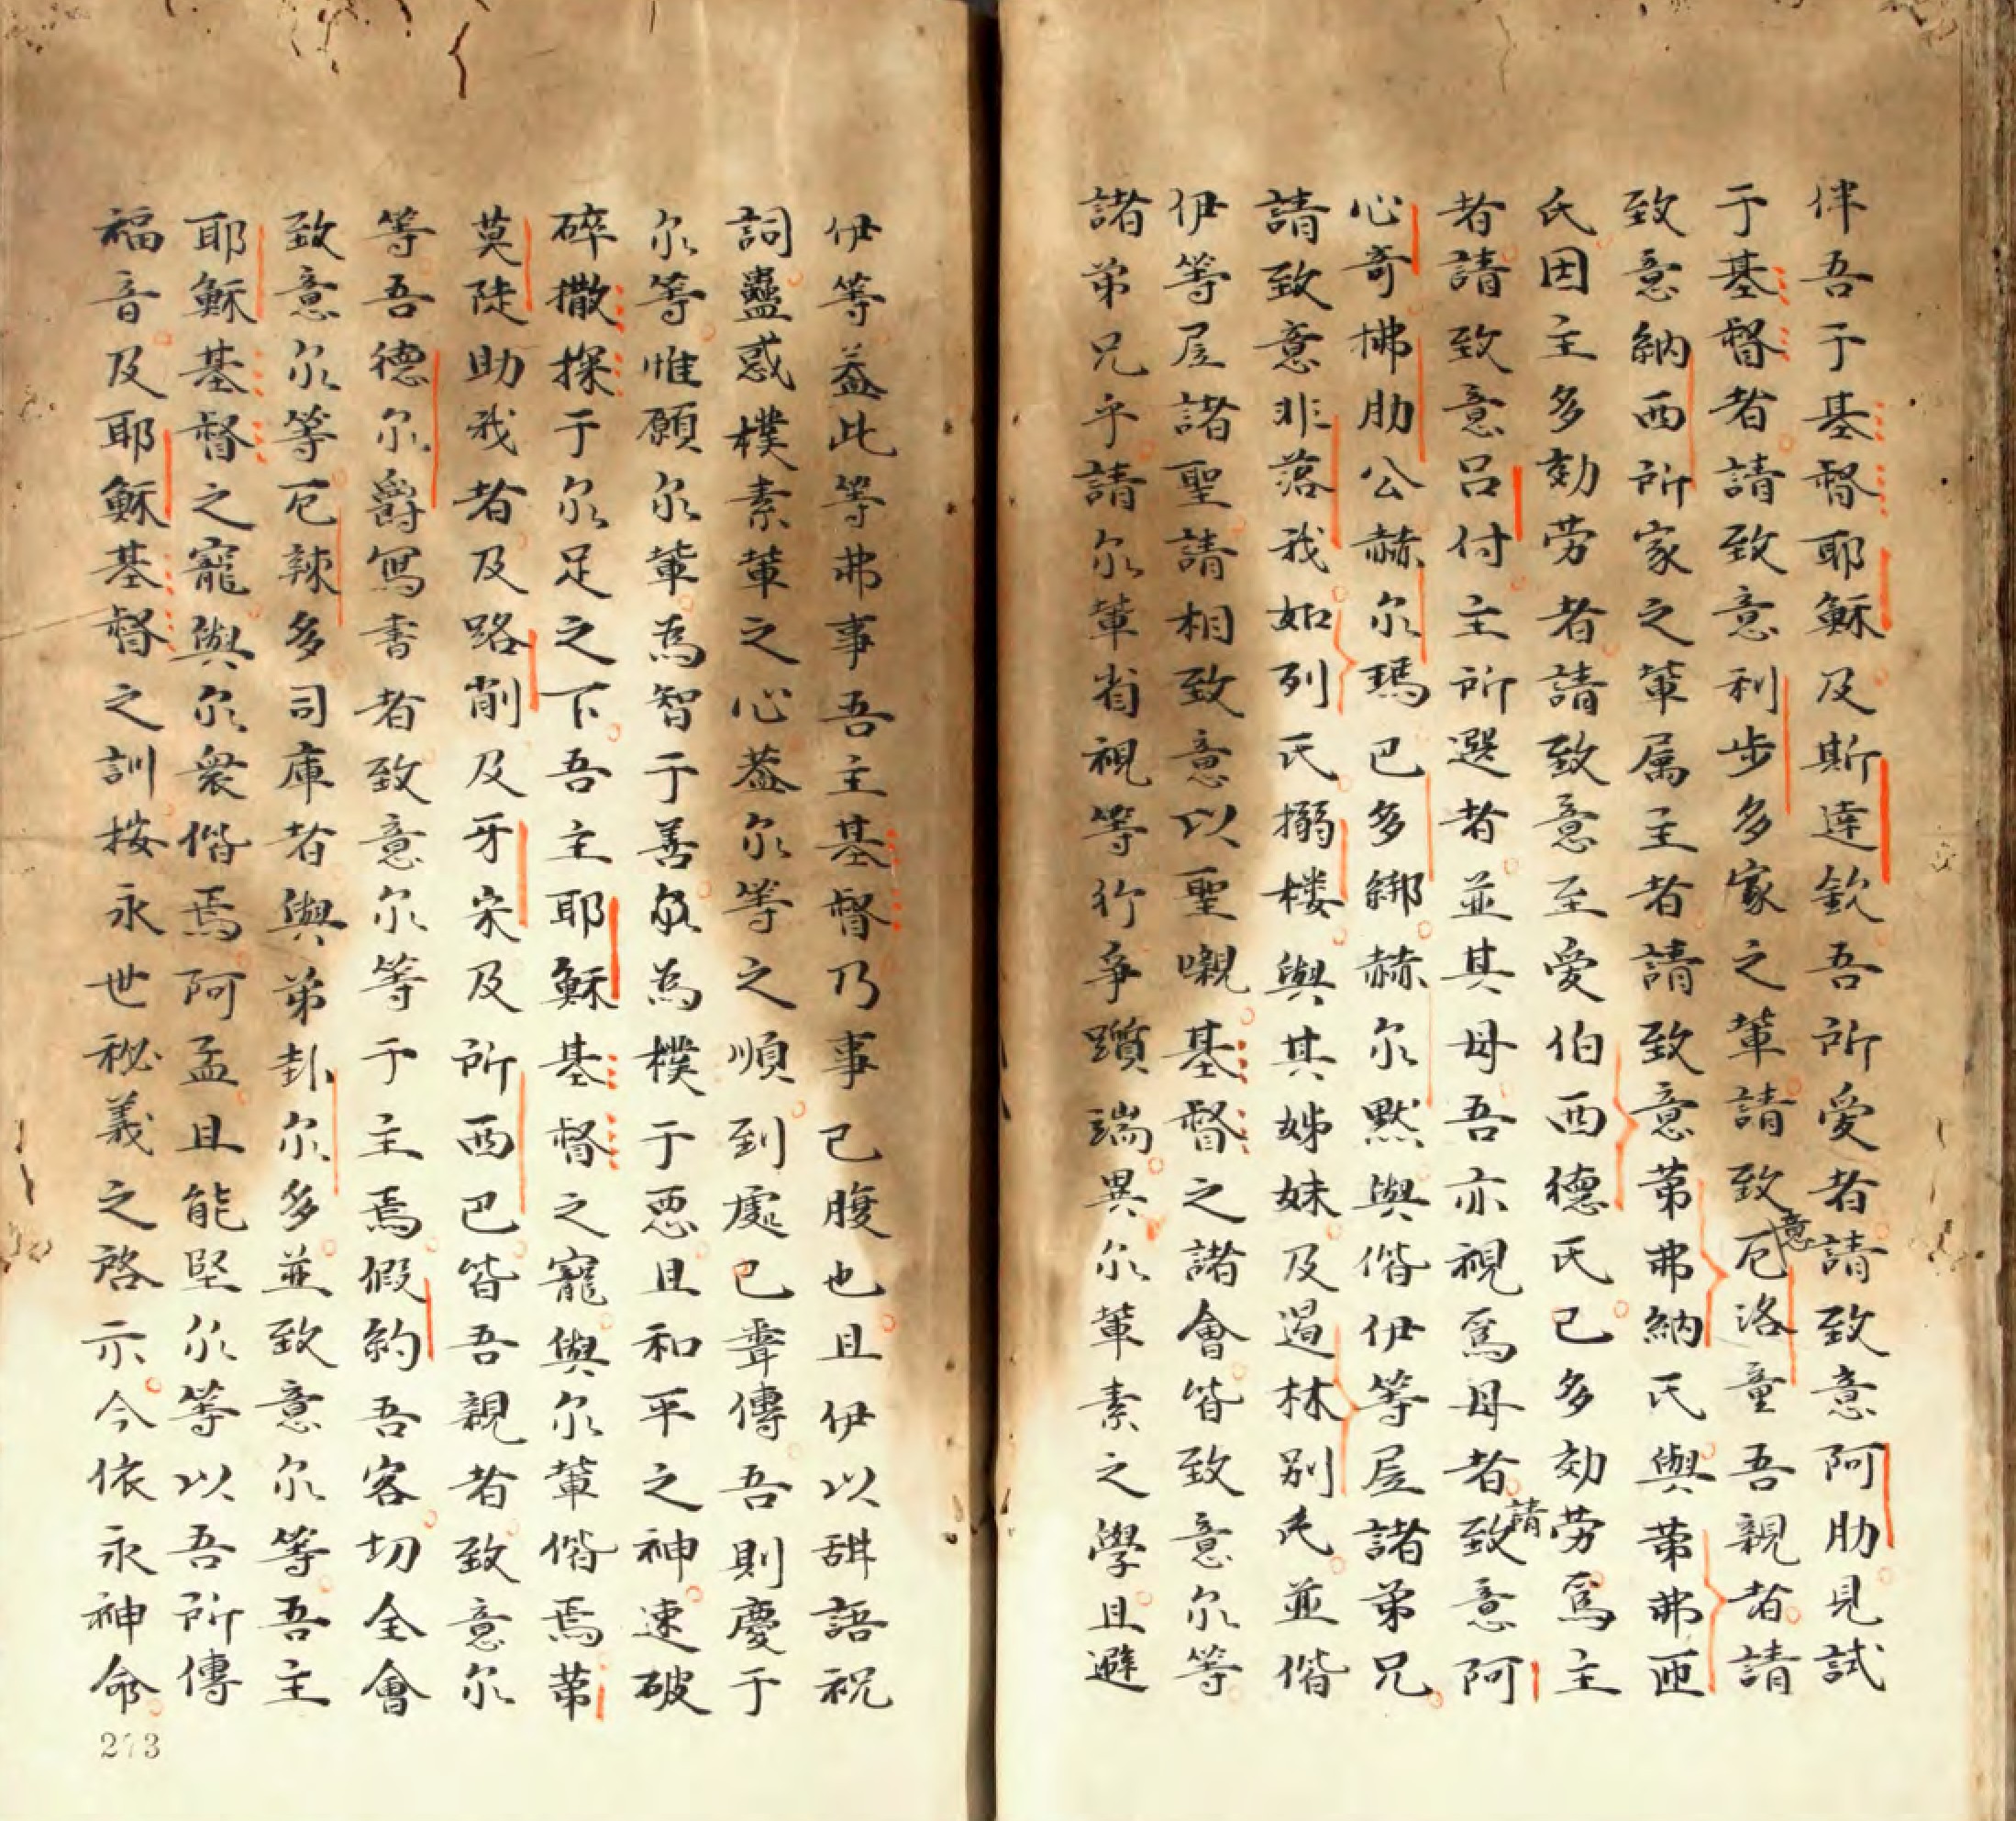 伴吾于基督耶穌及斯達欽吾所愛者請致意阿肋見試
于基督者請致意利步多家之輩請致意厄洛童吾親者請
致意納西所家之輩属主者請致意第弗納氏與第弗匝
氏因主多効劳者請致意至愛伯西德氏已多効劳爲主
者請致意吕付主所選者並其母吾亦視爲母者請致意阿
心奇拂肋公赫尔瑪巴多綁赫尔黙與偕伊等屋諸弟兄
請致意非落我如列氏搦樓與其姊妹及過林别氏並偕
伊等屋諸聖請相致意以聖嚫基督之諸會皆致意尔等
諸弟兄乎請尔輩省視等行爭躓端異尔輩素之學且避
伊等葢此等弗事吾主基督乃事己腹也且伊以甜語祝
詞蠱惑樸素輩之心葢尔等之順到處已聾傳吾則慶于
尔等惟願尔輩為智于善尔為樸于惡且和平之神速破
碎撒探于尔足之下吾主耶穌基督之寵與尔輩偕焉第
莫陡助我者及路削及牙宋及所西巴皆吾親者致意尔
等吾德尔爵寫書者致意尔等于主焉假約吾客切全會
致意尔等厄辣多司庫者與弟卦尔多並致意尔等吾主
耶穌基督之寵與尔衆偕焉阿孟且能堅尔等以吾所傳
福音及耶穌基督之訓按永世秘義之啓示今依永神命
273